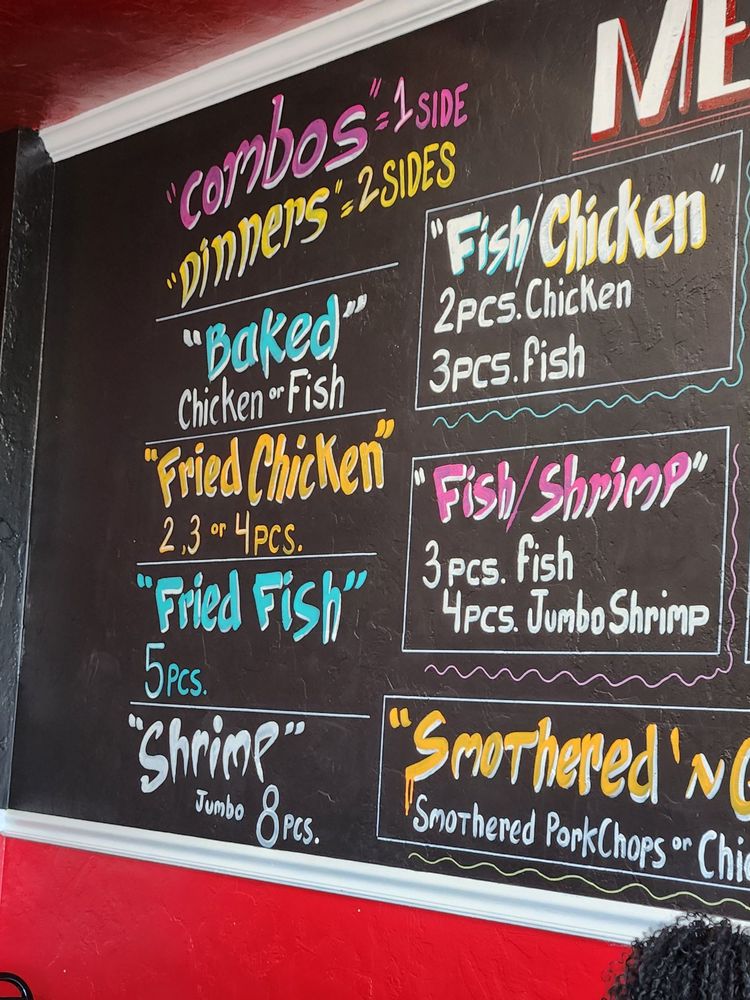 "Combos" = 1 SIDE
"Dinners" = 2 SIDES
"Baked"
Chicken or Fish
"Fried Chicken"
2,3 or 4 PCS.
"Fried Fish"
5 PCS.
"Shrimp"
Jumbo 8 PCS.
"Fish/Chicken"
2 PCS. Chicken
3 PCS. fish
"Fish/Shrimp"
3 PCS. fish
4 PCS. Jumbo Shrimp
"Smothered 'N
Smothered Pork Chops or